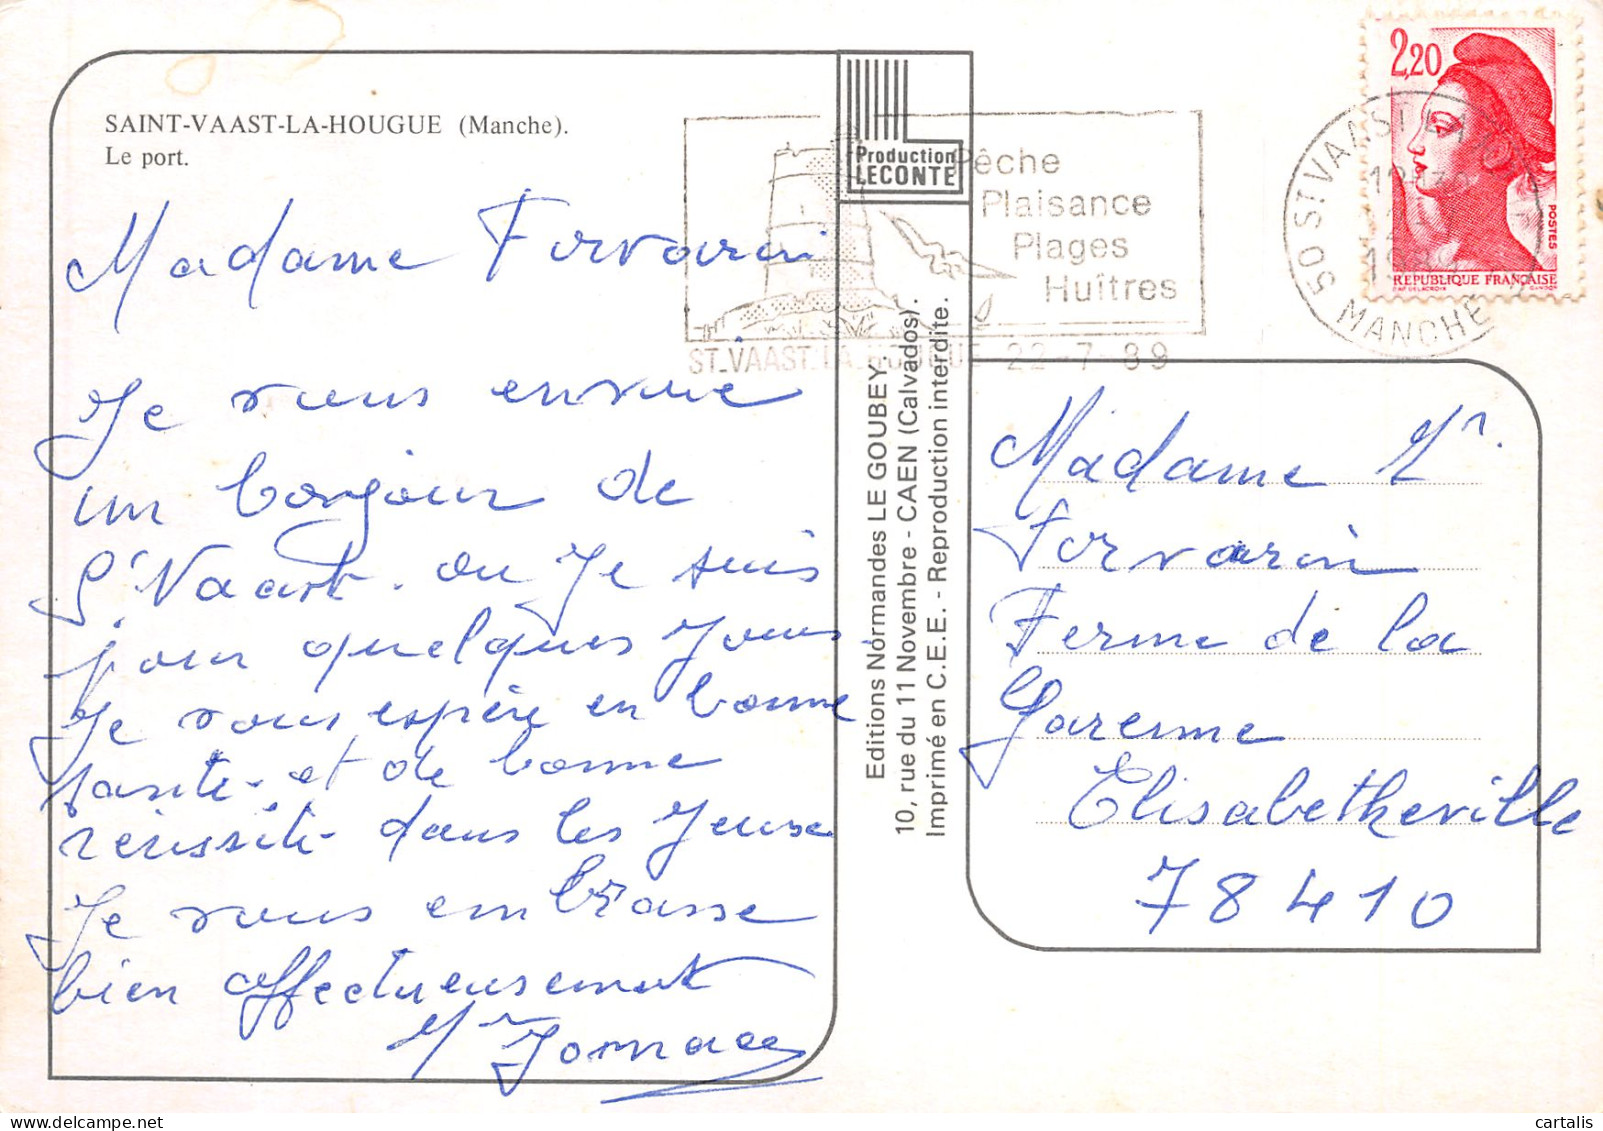 SAINT-VAAST-LA-HOUGUE (Manche).
Le port.
Madame Forvarin
Je vous envoie
un bonjour de
St Vaast. ou Je suis
pour quelques Jours
Je vous espère en bonne
santé. et de bonne
réussite dans les Jeuse
Je vous embrasse
bien affectueusement
Production
LECONTE
Editions Normandes LE GOUBEY.
10, rue du 11 Novembre - CAEN (Calvados).
Imprimé en C.E.E. - Reproduction interdite.
Pêche
Plaisance
Plages
Huîtres
ST.VAAST.LA.HOUGUE 22-7-89
50 ST VAAST LA
MANCHE
2,20
POSTES
REPUBLIQUE FRANÇAISE
Madame
Forvarin
Ferme de la
Garenne
Elisabetheville
78410
cartalis